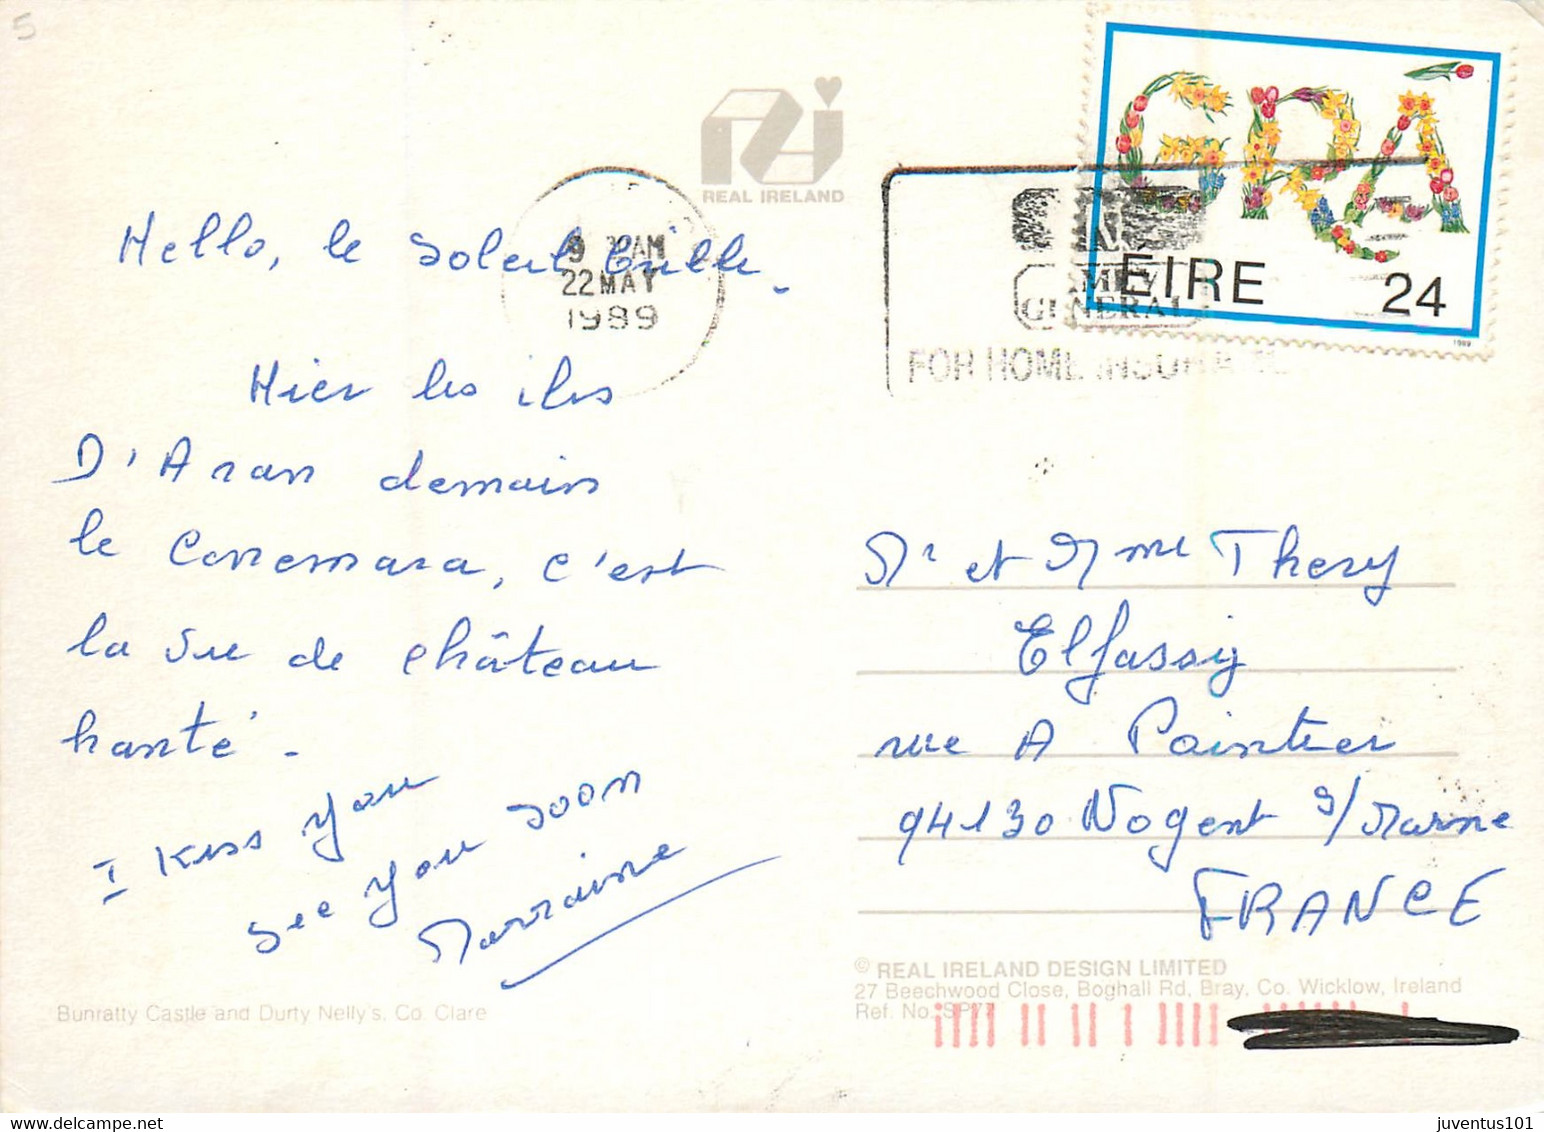 5
REAL IRELAND
GRÁ
ÉIRE 24
1989
9 AM
22 MAY
1989
GENERAL
FOR HOME INSURANCE
Hello, le soleil brille.
Hier les iles
D'Aran demain
le Conemara, c'est
la vue de château
hanté.
I Kiss you
see you soon
Marraine
Mr et Mme Thery
Elfassiy
rue A Pointier
94130 Nogent s/Marne
FRANCE
© REAL IRELAND DESIGN LIMITED
27 Beechwood Close, Boghall Rd, Bray, Co. Wicklow, Ireland
Ref. No. SP77
Bunratty Castle and Durty Nelly's, Co. Clare
juventus101